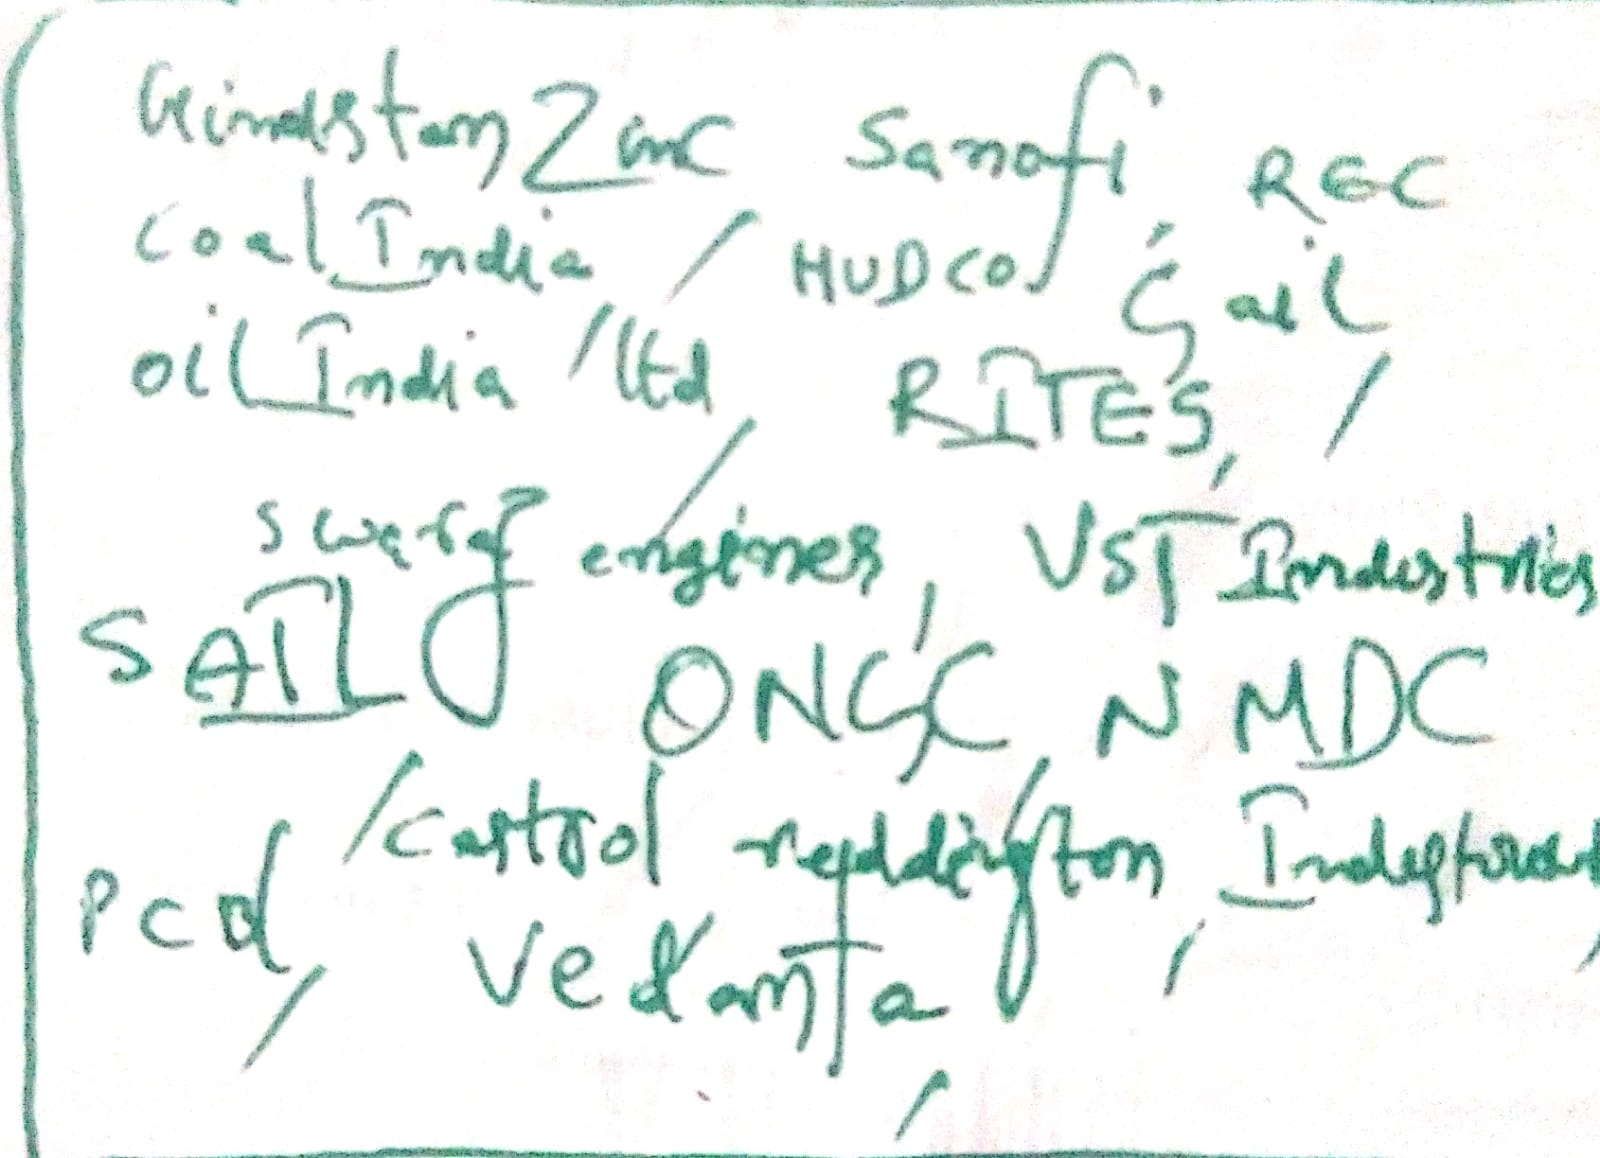 Hindustan Zinc Sanofi, REC
Coal India, HUDCO, Gail,
Oil India Ltd, RITES,
Swaraj engines, VST Industries
SAIL, ONGC, NMDC,
Castrol, reddington,
Vedanta,